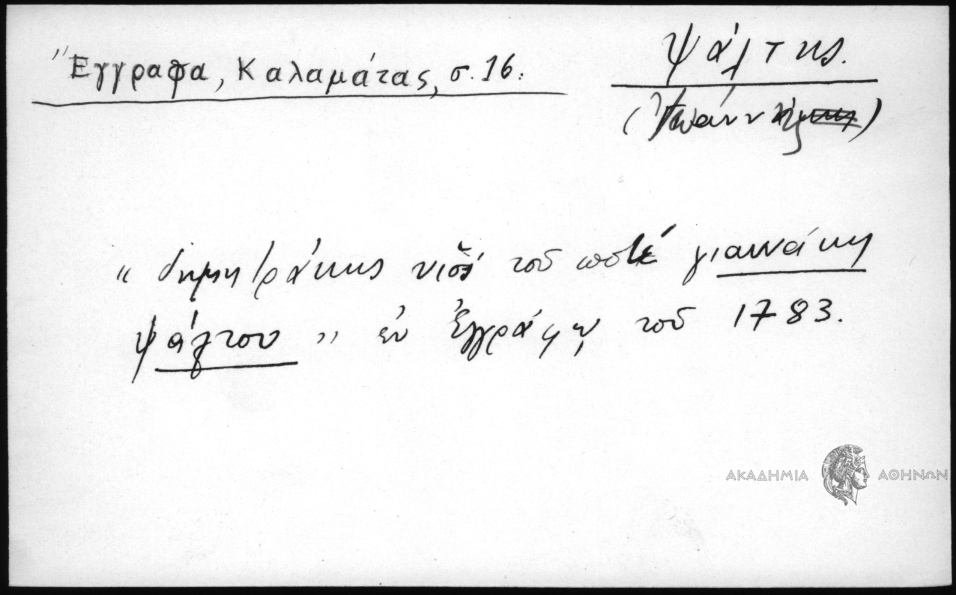 Ἔγγραφα, Καλαμάτας, σ. 16.
Ψάλτης.
(Ἰωάννης)
« δημητράκης υιὸς τοῦ ποτὲ γιαννάκη
ψάλτου » ἐν ἐγγράφῳ τοῦ 1783.
ΑΚΑΔΗΜΙΑ ΑΘΗΝΩΝ